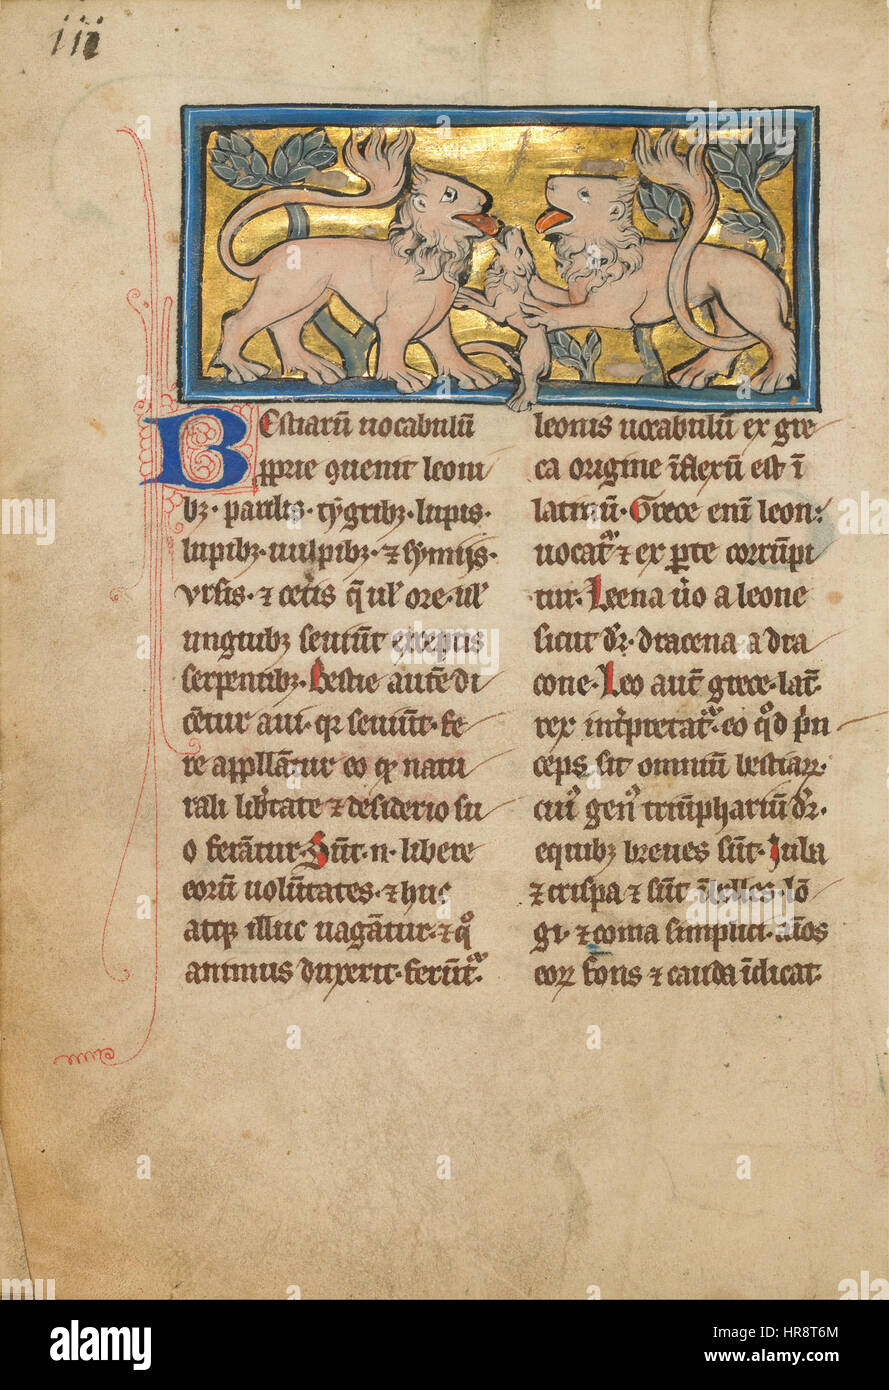 iii
Bestiarū uocabulū
ꝓprie ꝯuenit leoni
bꝫ· pardis· tygribꝫ· lupis·
uulpibꝫ· ⁊ symiis·
vrsis· ⁊ cet̄is q̄ ul̓ ore· ul̓
ungibꝫ seuiūt exceptis
serpentibꝫ· Bestie autē di
cūtur a ui· qꝫ seuiūt· fe
re appllāntur eo ꝙ natu
rali lib̓tate ⁊ desiderio su
o ferāntur· Sūt· n· libere
eorū uolūtates· ⁊ huc
atqꝫ illuc uagāntur· ⁊ qͦ
animus duxerit· ferūt᷑·
leonis uocabulū ex gre
ca origine īflexū est ī
latinū· Grece enī leon:
uocat᷑ ⁊ ex ꝑte corrūpi
tur· Leena u̓o a leone
sicut dr̄· dracena a dra
cone· Leo aut̄ grece· lat̄·
rex int̓pretat᷑· eo qͦd p̄n
ceps sit omniū bestiaꝝ·
cui᷒ gen᷒ t̓phariū dr̄·
e quibꝫ breues sūt· Iuba
⁊ crispa ⁊ sūt īb̓elles· lō
gi· ⁊ coma simplici· aīos
eoꝝ fons ⁊ cauda īdicat·
alamy
Image ID: HR8T6M
www.alamy.com